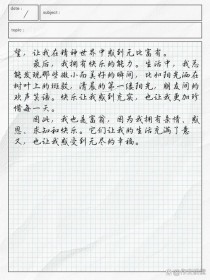 date:
/
subject:
topic:
望，让我在精神世界中感到无比富有。
最后，我拥有快乐的能力。生活中，我总
能发现那些微小而美好的瞬间，比如阳光洒在
树叶上的斑驳，清晨的第一缕阳光，朋友间的
欢声笑语。快乐让我感到充实，也让我更加珍
惜每一天。
因此，我也是富翁，因为我拥有亲情、感
恩、求知和快乐。它们让我的生活充满了意
义，也让我感受到无尽的幸福。